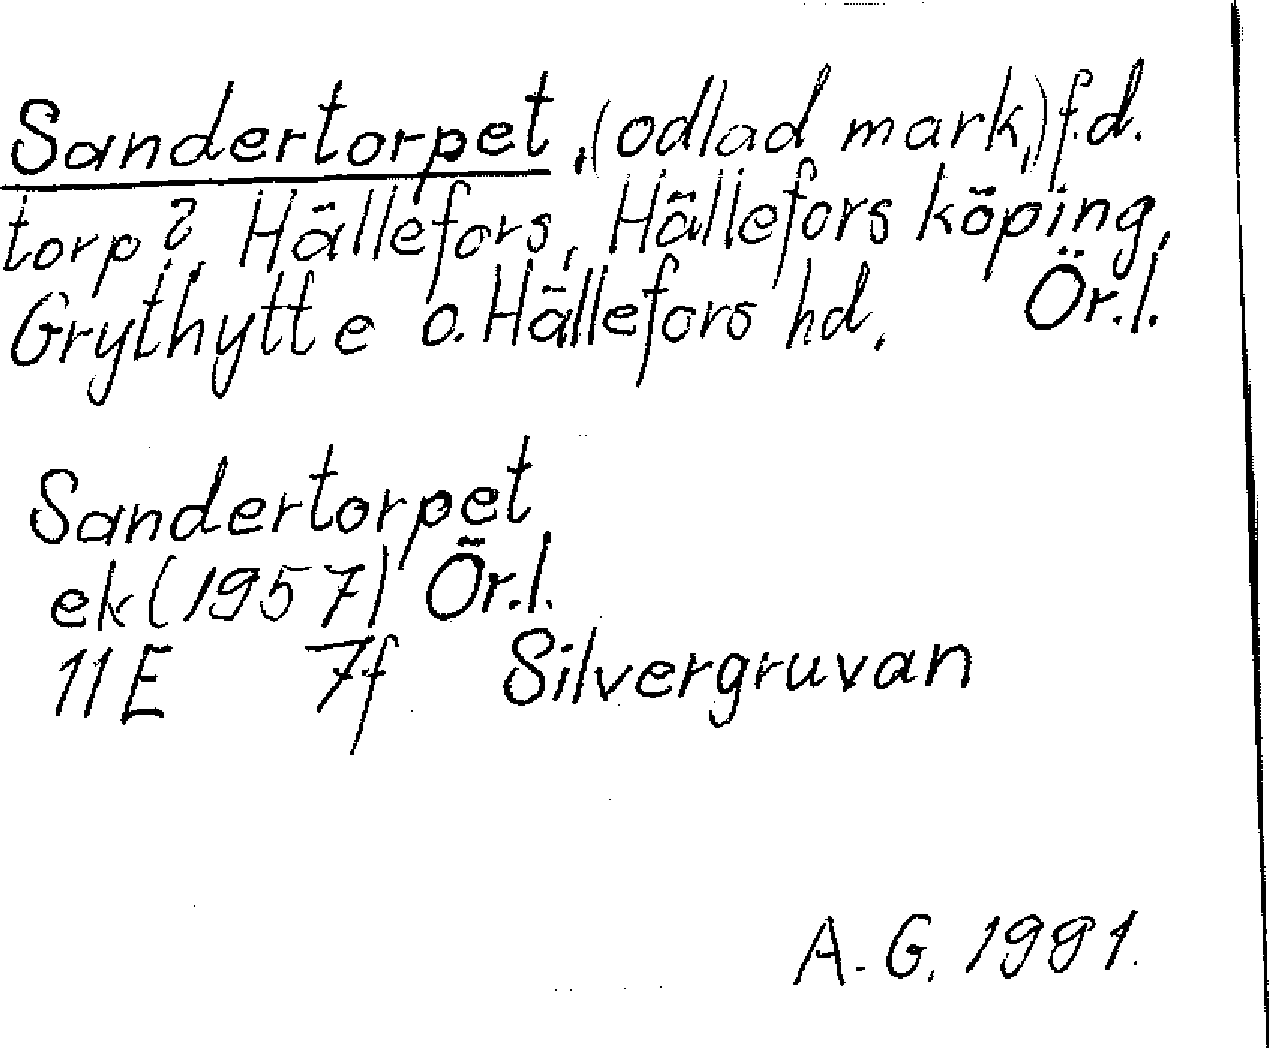 Sandertorpet, (odlad mark,) f.d.
torp?, Hällefors, Hällefors köping,
Grythytte o. Hällefors hd. Ör.l.
Sandertorpet
ek (1957) Ör.l.
11E 7f Silvergruvan
A.G. 1991.